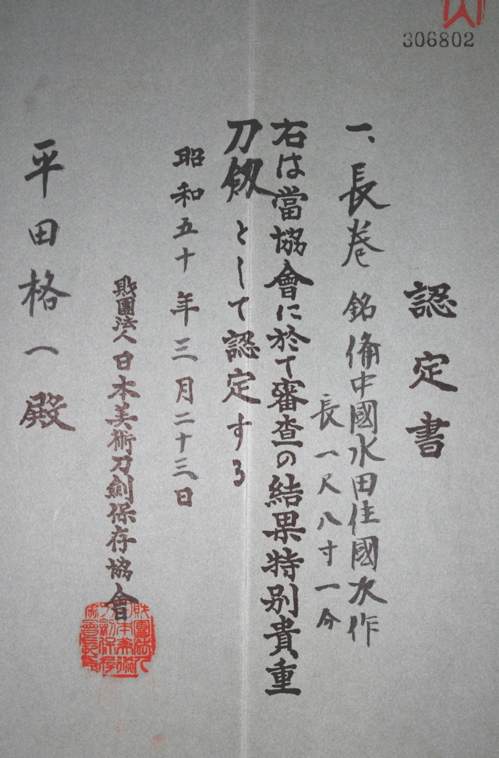 306802
認定書
一、長巻 銘 備中國水田住國次作
長一尺八寸一分
右は當協會に於て審査の結果特別貴重
刀劔として認定する
昭和五十年三月二十三日
財團法人日本美術刀劍保存協會
平田格一殿